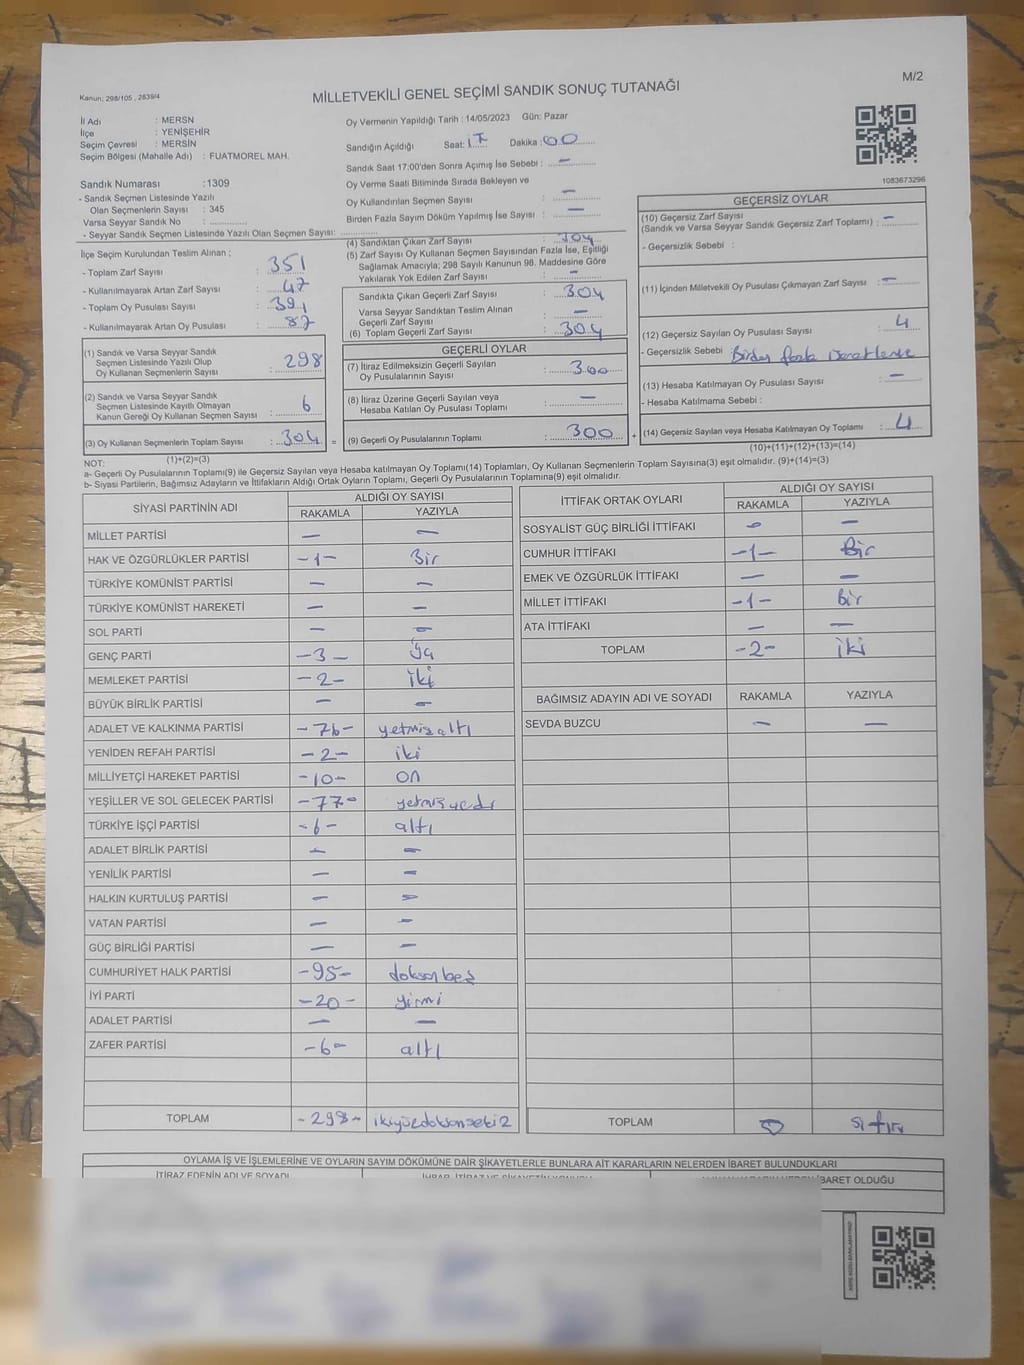 M/2
Kanun; 298/105 , 2839/4
MİLLETVEKİLİ GENEL SEÇİMİ SANDIK SONUÇ TUTANAĞI
İl Adı : MERSN
İlçe : YENİŞEHİR
Seçim Çevresi : MERSİN
Seçim Bölgesi (Mahalle Adı) : FUATMOREL MAH.
Sandık Numarası :1309
- Sandık Seçmen Listesinde Yazılı
Olan Seçmenlerin Sayısı : 345
Varsa Seyyar Sandık No :
- Seyyar Sandık Seçmen Listesinde Yazılı Olan Seçmen Sayısı:
İlçe Seçim Kurulundan Teslim Alınan ;
- Toplam Zarf Sayısı : 351
- Kullanılmayarak Artan Zarf Sayısı : 47
- Toplam Oy Pusulası Sayısı : 391
- Kullanılmayarak Artan Oy Pusulası : 87
(1) Sandık ve Varsa Seyyar Sandık
Seçmen Listesinde Yazılı Olup
Oy Kullanan Seçmenlerin Sayısı : 298
(2) Sandık ve Varsa Seyyar Sandık
Seçmen Listesinde Kayıtlı Olmayan
Kanun Gereği Oy Kullanan Seçmen Sayısı : 6
(3) Oy Kullanan Seçmenlerin Toplam Sayısı : 304
(1)+(2)=(3)
Oy Vermenin Yapıldığı Tarih : 14/05/2023 Gün: Pazar
Sandığın Açıldığı Saat: 17 Dakika : 00
Sandık Saat 17:00'den Sonra Açımış İse Sebebi : —
Oy Verme Saati Bitiminde Sırada Bekleyen ve
Oy Kullandırılan Seçmen Sayısı : —
Birden Fazla Sayım Döküm Yapılmış İse Sayısı : —
(4) Sandıktan Çıkan Zarf Sayısı : 304
(5) Zarf Sayısı Oy Kullanan Seçmen Sayısından Fazla İse, Eşitliği
Sağlamak Amacıyla; 298 Sayılı Kanunun 98. Maddesine Göre
Yakılarak Yok Edilen Zarf Sayısı : —
Sandıkta Çıkan Geçerli Zarf Sayısı : 304
Varsa Seyyar Sandıktan Teslim Alınan
Geçerli Zarf Sayısı : —
(6) Toplam Geçerli Zarf Sayısı : 304
GEÇERLİ OYLAR
(7) İtiraz Edilmeksizin Geçerli Sayılan
Oy Pusulalarının Sayısı : 300
(8) İtiraz Üzerine Geçerli Sayılan veya
Hesaba Katılan Oy Pusulası Toplamı : —
(9) Geçerli Oy Pusulalarının Toplamı : 300
1083673296
GEÇERSİZ OYLAR
(10) Geçersiz Zarf Sayısı
(Sandık ve Varsa Seyyar Sandık Geçersiz Zarf Toplamı) : —
- Geçersizlik Sebebi :
(11) İçinden Milletvekili Oy Pusulası Çıkmayan Zarf Sayısı : —
(12) Geçersiz Sayılan Oy Pusulası Sayısı : 4
- Geçersizlik Sebebi : Birden fazla işaretleme
(13) Hesaba Katılmayan Oy Pusulası Sayısı : —
- Hesaba Katılmama Sebebi :
(14) Geçersiz Sayılan veya Hesaba Katılmayan Oy Toplamı : 4
(10)+(11)+(12)+(13)=(14)
NOT:
a- Geçerli Oy Pusulalarının Toplamı(9) ile Geçersiz Sayılan veya Hesaba katılmayan Oy Toplamı(14) Toplamları, Oy Kullanan Seçmenlerin Toplam Sayısına(3) eşit olmalıdır. (9)+(14)=(3)
b- Siyasi Partilerin, Bağımsız Adayların ve İttifakların Aldığı Ortak Oyların Toplamı, Geçerli Oy Pusulalarının Toplamına(9) eşit olmalıdır.
SİYASİ PARTİNİN ADI ALDIĞI OY SAYISI
RAKAMLA YAZIYLA
MİLLET PARTİSİ — —
HAK VE ÖZGÜRLÜKLER PARTİSİ -1- Bir
TÜRKİYE KOMÜNİST PARTİSİ — —
TÜRKİYE KOMÜNİST HAREKETİ — —
SOL PARTİ — —
GENÇ PARTİ -3-
MEMLEKET PARTİSİ -2- iki
BÜYÜK BİRLİK PARTİSİ — —
ADALET VE KALKINMA PARTİSİ -76- yetmişaltı
YENİDEN REFAH PARTİSİ -2- iki
MİLLİYETÇİ HAREKET PARTİSİ -10- on
YEŞİLLER VE SOL GELECEK PARTİSİ -77-
TÜRKİYE İŞÇİ PARTİSİ -6- altı
ADALET BİRLİK PARTİSİ — —
YENİLİK PARTİSİ — —
HALKIN KURTULUŞ PARTİSİ — —
VATAN PARTİSİ — —
GÜÇ BİRLİĞİ PARTİSİ — —
CUMHURİYET HALK PARTİSİ -95- doksanbeş
İYİ PARTİ -20- yirmi
ADALET PARTİSİ — —
ZAFER PARTİSİ -6- altı
TOPLAM -298- ikiyüzdoksansekiz
İTTİFAK ORTAK OYLARI ALDIĞI OY SAYISI
RAKAMLA YAZIYLA
SOSYALİST GÜÇ BİRLİĞİ İTTİFAKI — —
CUMHUR İTTİFAKI -1- Bir
EMEK VE ÖZGÜRLÜK İTTİFAKI — —
MİLLET İTTİFAKI -1- Bir
ATA İTTİFAKI — —
TOPLAM -2- iki
BAĞIMSIZ ADAYIN ADI VE SOYADI RAKAMLA YAZIYLA
SEVDA BUZCU — —
TOPLAM 0 sıfır
OYLAMA İŞ VE İŞLEMLERİNE VE OYLARIN SAYIM DÖKÜMÜNE DAİR ŞİKAYETLERLE BUNLARA AİT KARARLARIN NELERDEN İBARET BULUNDUKLARI
İTİRAZ EDENİN ADI VE SOYADI
İBARET OLDUĞU